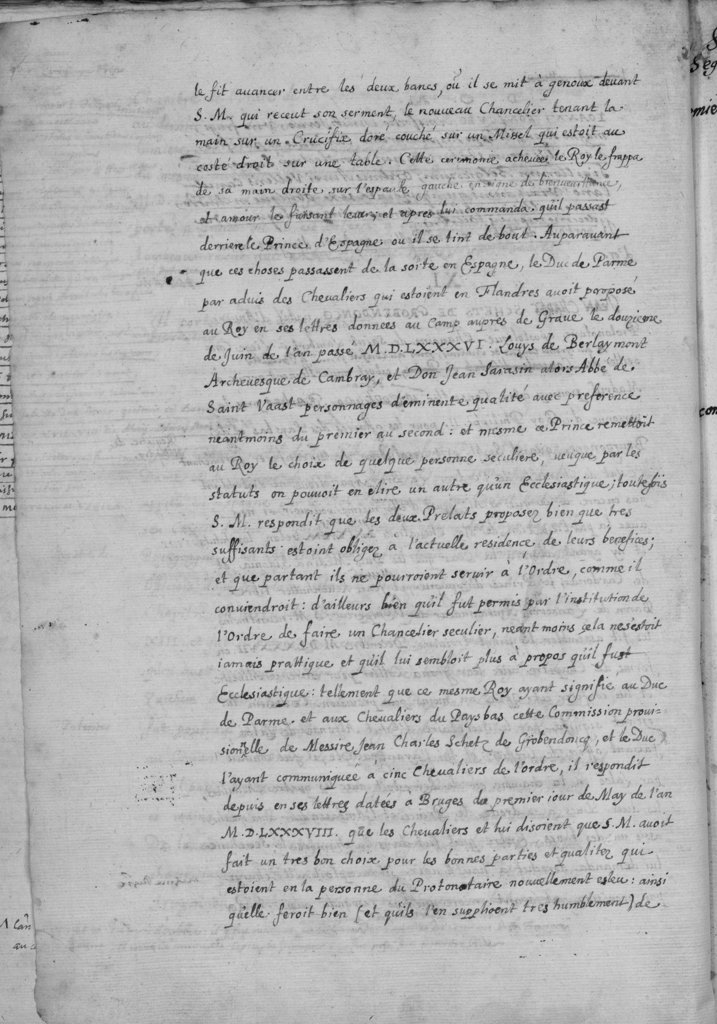 le fit auancer entre les deux bancs, où il se mit à genoux deuant
S. M. qui receut son serment, le nouueau Chancelier tenant la
main sur un Crucifix doré couché sur un Missel qui estoit au
costé droit sur une table. Cette ceremonie acheuée, le Roy le frappa
de sa main droite sur l'espaule gauche en signe de bienueuillance,
et amour le faisant leuer, et apres lui commanda qu'il passast
derriere le Prince d'Espagne ou il se tint de bout. Auparauant
que ces choses passassent de la sorte en Espagne, le Duc de Parme
par aduis des Cheualiers qui estoient en Flandres auoit proposé
au Roy en ses lettres données au Camp aupres de Graue le douzieme
de Juin de l'an passé M.D.LXXXVI. Louys de Berlaymont
Archeuesque de Cambray, et Don Jean Sarasin alors Abbé de
Saint Vaast personnages d'eminente qualité auec preference
neantmoins du premier au second: et mesme ce Prince remettoit
au Roy le choix de quelque personne seculiere, veuque par les
statuts on pouuoit en elire un autre qu'un Ecclesiastique; toutefois
S. M. respondit que les deux Prelats proposez bien que tres
suffisants estoint obligez à l'actuelle residence de leurs benefices;
et que partant ils ne pourroient seruir à l'Ordre, comme il
conuiendroit: d'ailleurs bien qu'il fut permis par l'institution de
l'Ordre de faire un Chancelier seculier, neantmoins cela ne s'estoit
iamais prattiqué et qu'il lui sembloit plus à propos qu'il fust
Ecclesiastique: tellement que ce mesme Roy ayant signifié au Duc
de Parme, et aux Cheualiers du Paysbas cette Commission proui-
sionelle de Messire Jean Charles Schetz de Grobendoncq, et le Duc
l'ayant communiquée à cinc Cheualiers de l'ordre, il respondit
depuis en ses lettres datées à Bruges du premier iour de May de l'an
M.D.LXXXVIII. que les Cheualiers et lui disoient que S. M. auoit
fait un tres bon choix pour les bonnes parties et qualitez qui
estoient en la personne du Protonotaire nouuellement esleu: ainsi
qu'elle feroit bien (et qu'ils l'en supplioent tres humblement) de